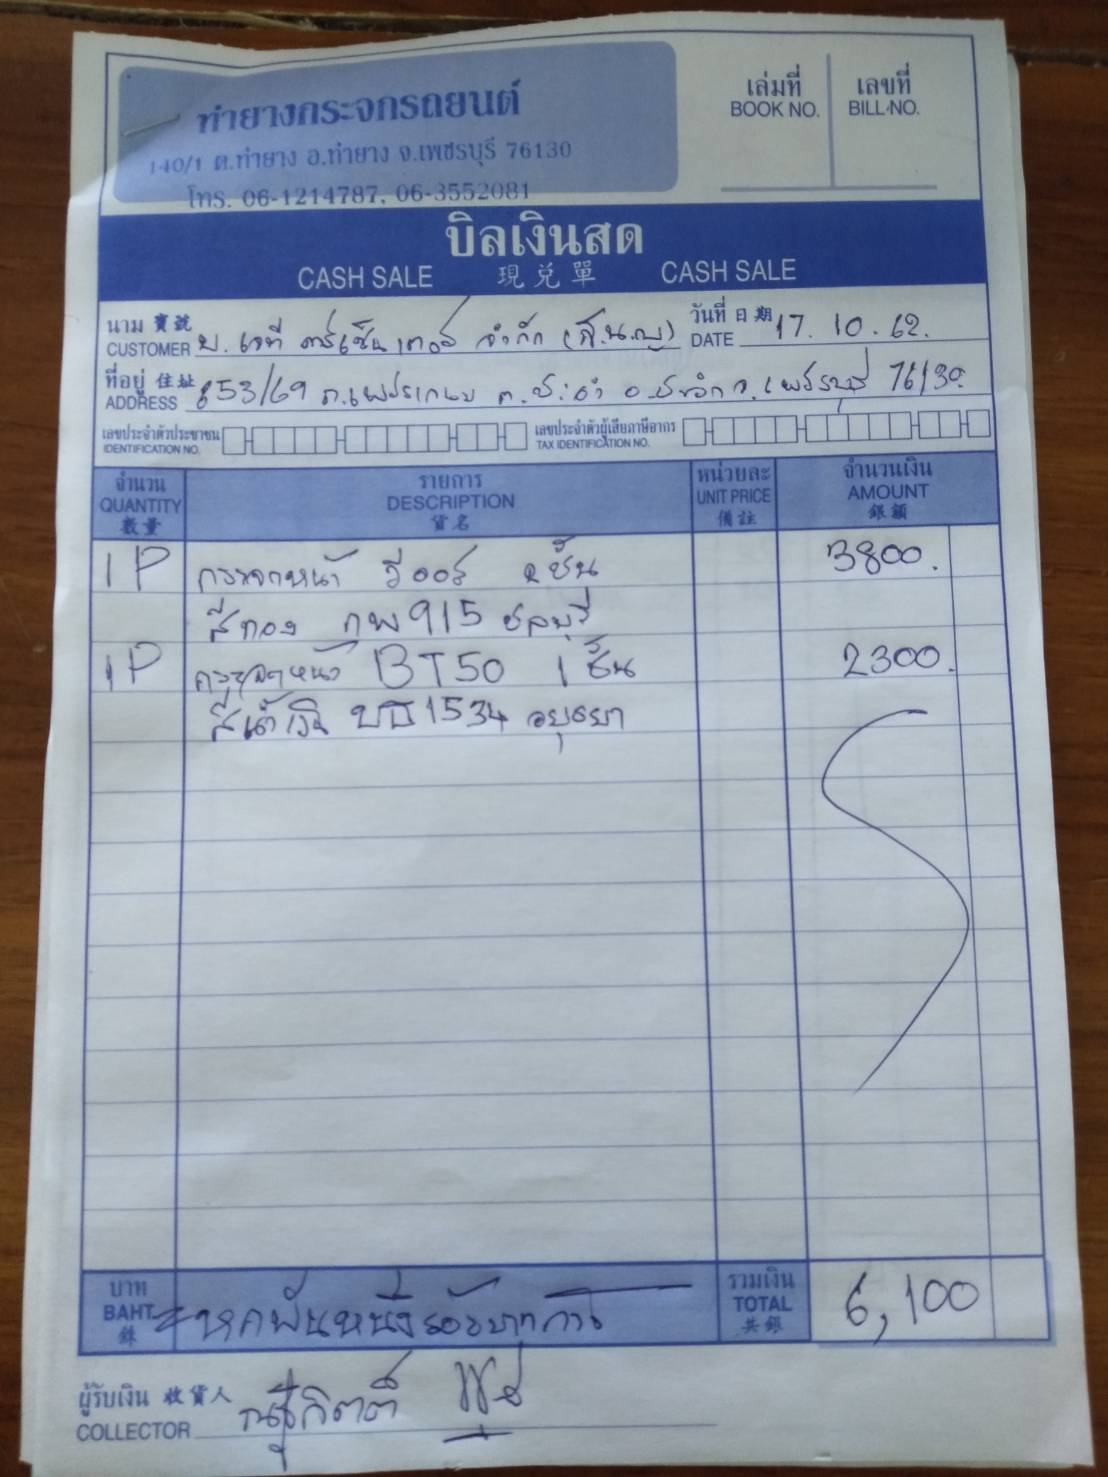 ท่ายางกระจกรถยนต์
140/1 ต.ท่ายาง อ.ท่ายาง จ.เพชรบุรี 76130
โทร. 06-1214787, 06-3552081
เล่มที่ เลขที่
BOOK NO. BILL NO.
บิลเงินสด
CASH SALE 現兌單 CASH SALE
นาม 寶號 บ. เจที คาร์เซ็นเตอร์ จำกัด (ส.น.ญ) วันที่ 日期 17. 10. 62.
CUSTOMER DATE
ที่อยู่ 住址 853/69 ถ.เพชรเกษม ต.ชะอำ อ.ชะอำ จ.เพชรบุรี 76130
ADDRESS
เลขประจำตัวประชาชน เลขประจำตัวผู้เสียภาษีอากร
IDENTIFICATION NO. TAX IDENTIFICATION NO.
จำนวน รายการ หน่วยละ จำนวนเงิน
QUANTITY DESCRIPTION UNIT PRICE AMOUNT
數量 貨名 備註 銀額
1 P กระจกหน้า วีออส 2 ชั้น 3800.
สีทอง กพ 915 ชลบุรี
1 P กระจกหน้า BT50 1 ชั้น 2300.
สีเทา 1534 อยุธยา
บาท หกพันหนึ่งร้อยบาทถ้วน รวมเงิน 6,100
BAHT TOTAL
銖 共銀
ผู้รับเงิน 收貨人
COLLECTOR